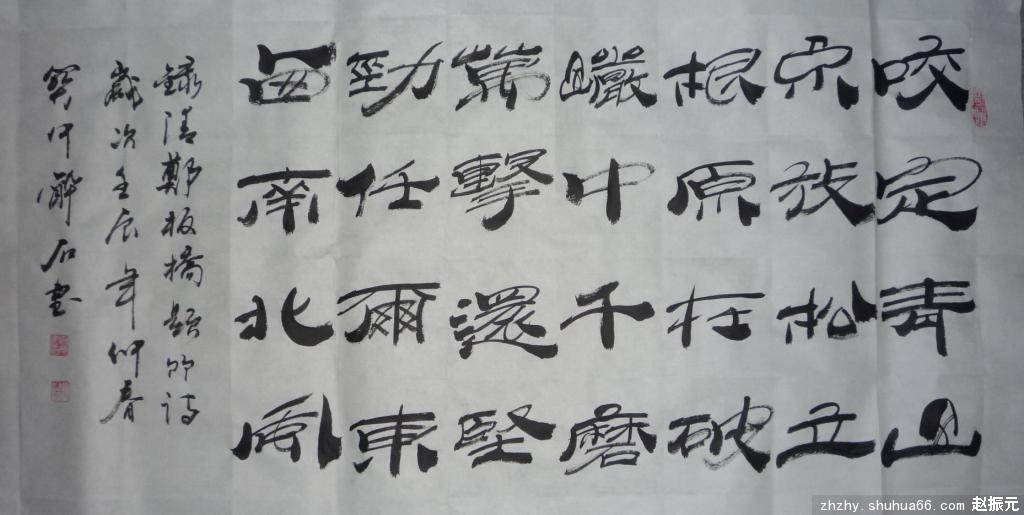 咬定青山
不放松立
根原在破
巖中千磨
萬擊還堅
勁任爾東
西南北風
錄清鄭板橋題竹詩
歲次壬辰年仲春
石書
zhzhy.shuhua66.com 赵振元